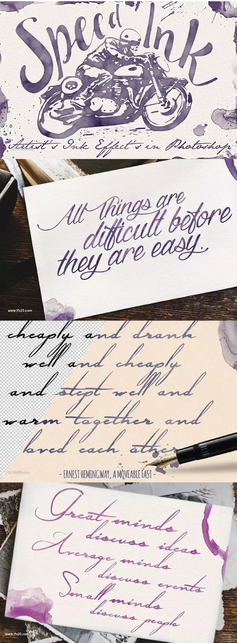 Speed Ink
Artist's Ink Effect's in Photoshop
All Things are
difficult before
they are easy.
www.fltr25.com
cheaply and drank
well and cheaply
and slept well and
warm together and
loved each
- ERNEST HEMINGWAY, A MOVEABLE FEAST -
Great minds
discuss ideas
Average minds
discuss events
Small minds
discuss people